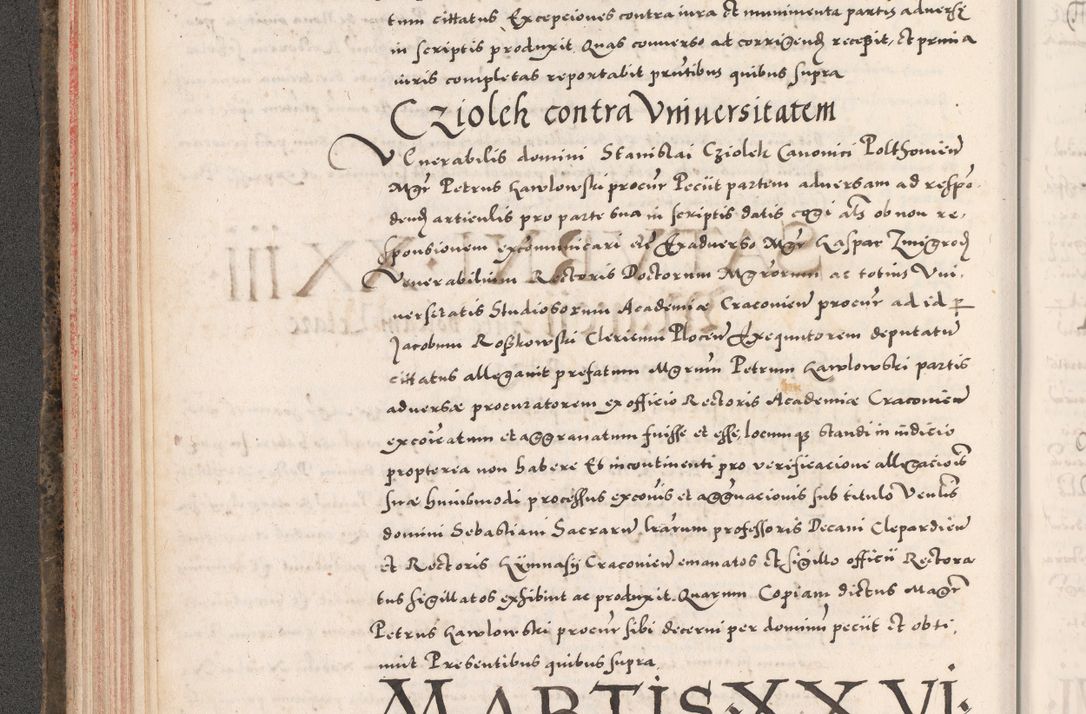 tum cittatus Excepciones contra iura et munimenta partis adversę
in scriptis produxit. Quas converso ad corrigend recepit, et pruia
iuris completas reportabit pruntibus quibus supra
Cziolek contra Vniuersitatem
Venerabilis domini Stanislai Cziolek Canonici Polthouien
Mgr Petrus Gawlowski procur Peciit partem adversam ad respo
dend articulis pro parte sua in scriptis datis cogi als ob non re,
sponsionem excomunicari etc Exadverso Mgr Gaspar Zmigrod
Venerabilium Rectoris Doctorum Mgrorum ac totius Vni,
versitatis Studiosorum Academiæ Cracovien procur ad id p
Jacobum Roszkowski Clericum Plocen Exequutorem deputatu
cittatus allegavit prefatum Mgrum Petrum Gawlowski partis
adversæ procuratorem ex officio Rectoris Academiæ Cracovien
excoicatum et aggravatum fuisse et esse, locumq standi in iudicio
propterea non habere Et incontinenti pro verificacione allgaciois
suæ huiusmodi processus excoiis et aggvacionis sub titulo Venlis
domini Sebastiani Sacrarum lrarum professoris Decani Clepardien
et Rectoris Gymnasy Cracovien emanatos et sigillo officii Rectora
tus sigillatos exhibuit ac produxit. Quarum Copiam dictus Magr
Petrus Gawlowski procur sibi decerni per dominum peciit et obti,
nuit Presentibus quibus supra
MARTIS XXVI